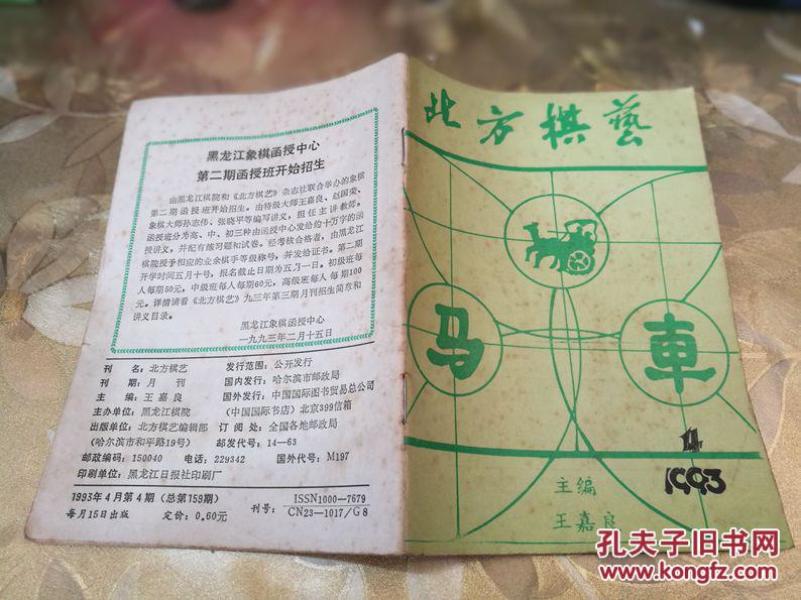 黑龙江象棋函授中心
第二期函授班开始招生
由黑龙江棋院和《北方棋艺》杂志社联合举办的象棋
第二期函授班开始招生。由特级大师王嘉良、赵国荣、
象棋大师孙志伟、张晓平等编写讲义，担任主讲教师。
函授班分为高、中、初三种由函授中心发给约十万字的函
授讲义，并配有练习题和试卷。经考核合格者，由黑龙江
棋院授予相应的业余棋手等级称号，并发给证书。第二期
开学时间五月十号，报名截止日期为五月一日。初级班每
人每期50元，中级班每人每期60元，高级班每人每期100
元。详情请看《北方棋艺》九三年第三期月刊招生简章和
讲义目录。
黑龙江象棋函授中心
一九九三年二月十五日
刊 名：北方棋艺 发行范围：公开发行
刊 期：月 刊 国内发行：哈尔滨市邮政局
主 编：王嘉良 国外发行：中国国际图书贸易总公司
主办单位：黑龙江棋院 （中国国际书店）北京399信箱
出版单位：北方棋艺编辑部 订阅处：全国各地邮政局
（哈尔滨市和平路19号） 邮发代号：14—63
邮政编码：150040 电话：229342 国外代号：M197
印刷单位：黑龙江日报社印刷厂
1993年4月第4期（总第159期）
每月15日出版 定价：0.60元
刊号：ISSN1000—7679
CN23—1017/G8
北方棋藝
马
車
4
1993
主编
王嘉良
孔夫子旧书网
www.kongfz.com